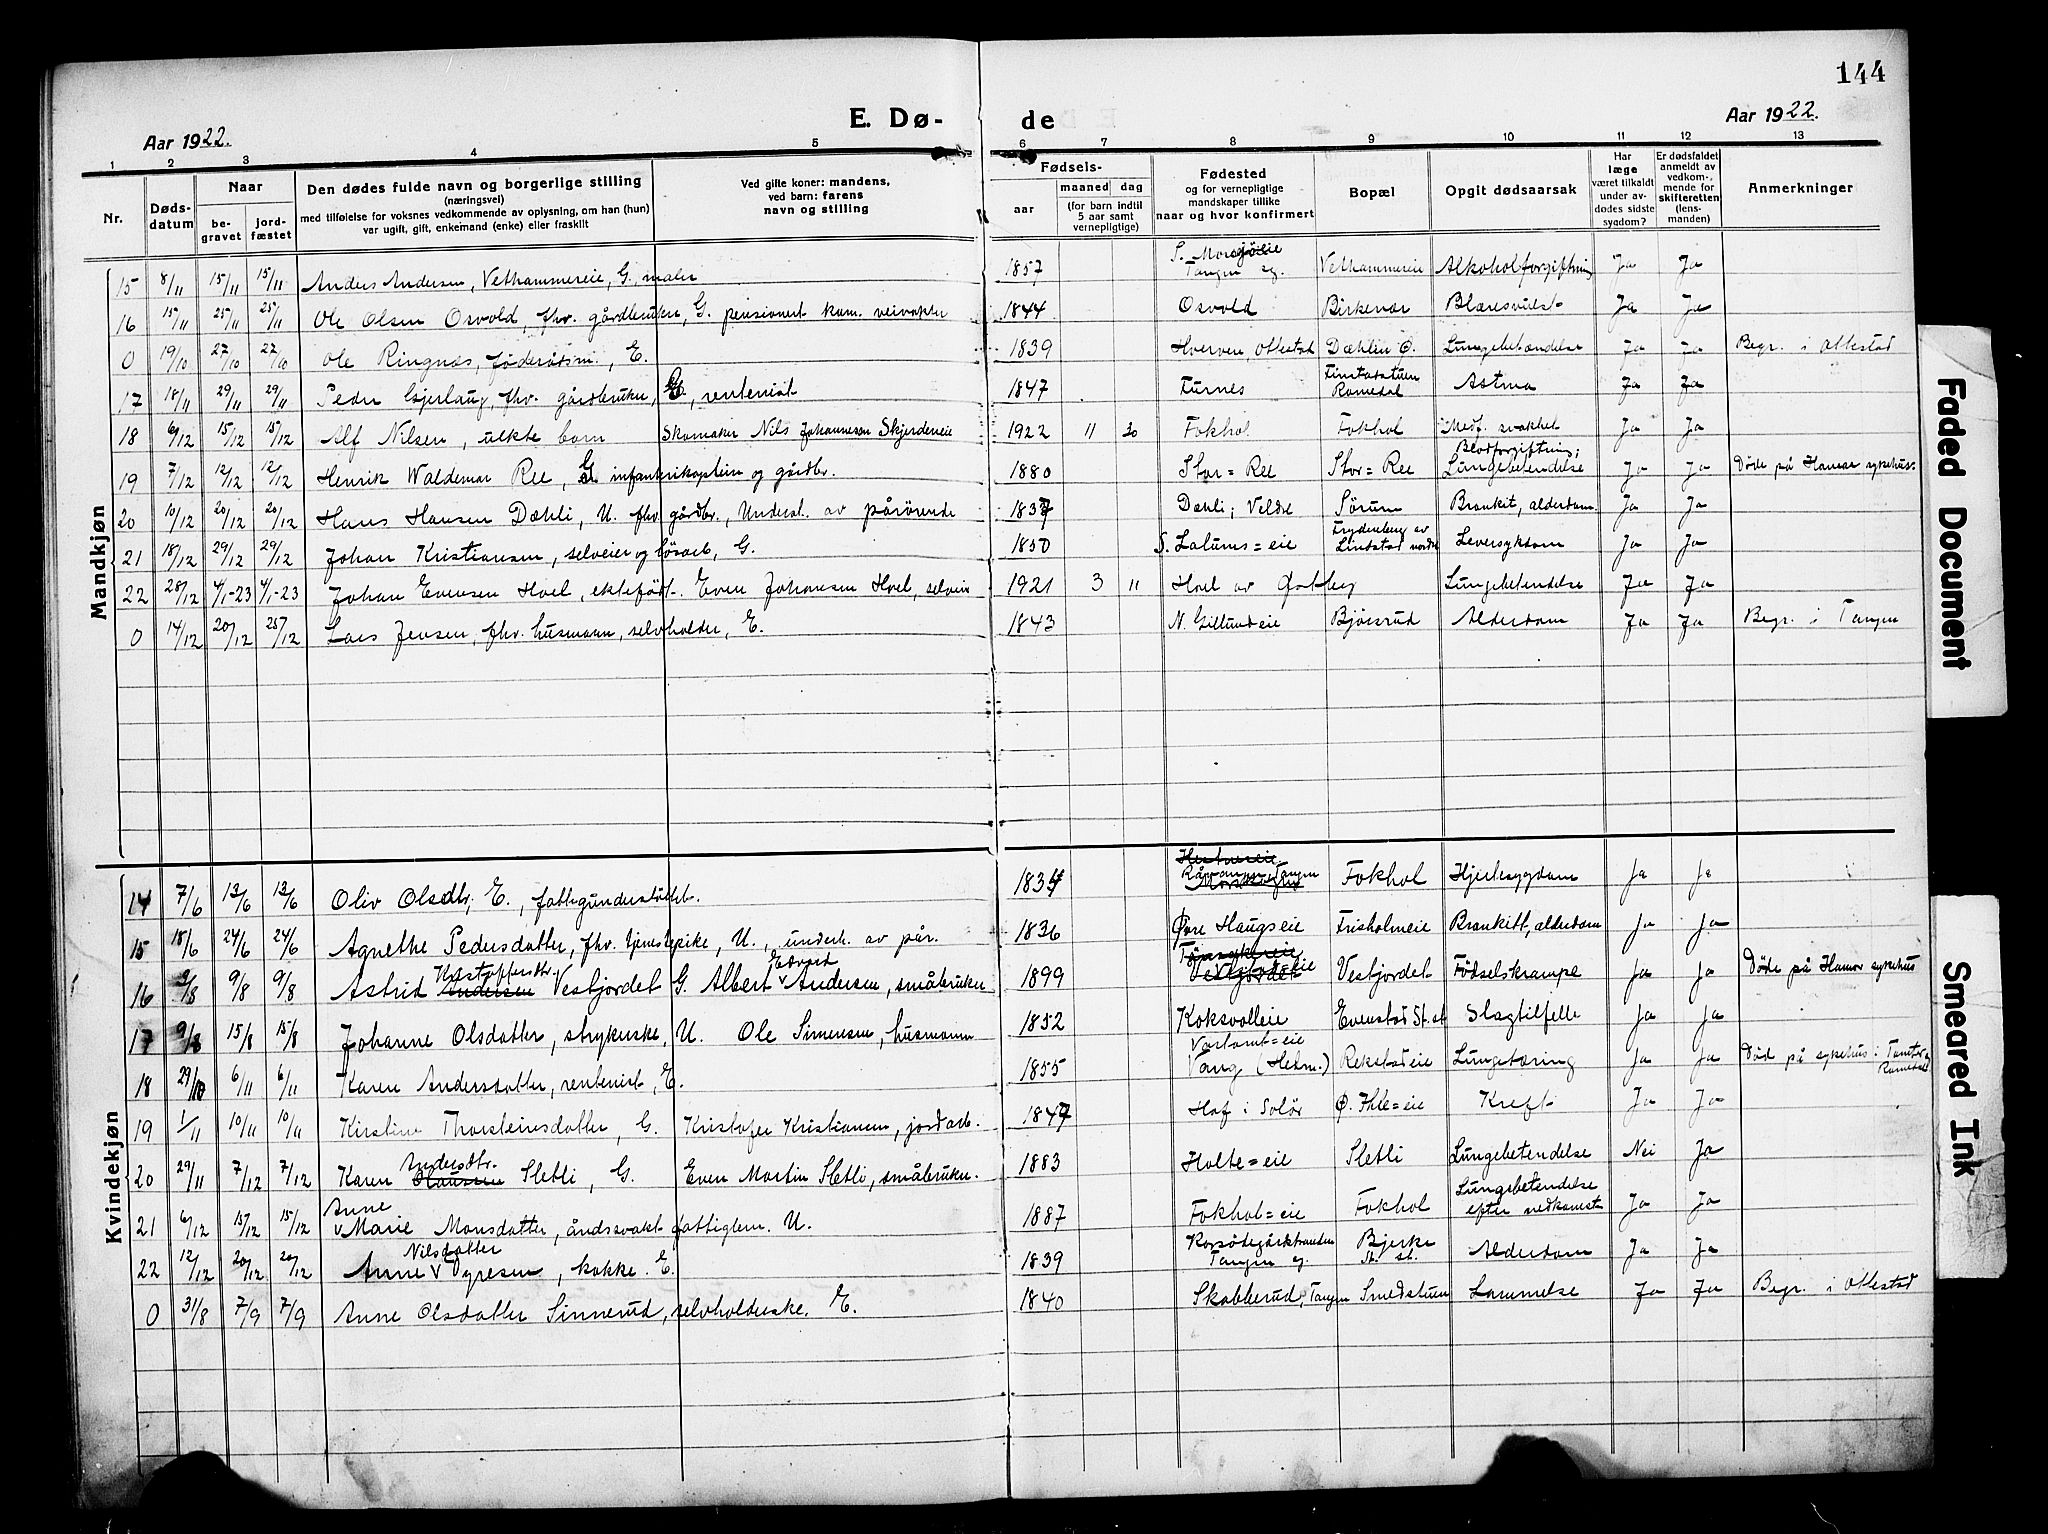 144
E. Dø- de
Aar 1922. Aar 1922.
1 2 3 4 5 6 7 8 9 10 11 12 13
Nr. Døds-datum Naar be-gravet jord-fæstet Den dødes fulde navn og borgerlige stilling (næringsvei) med tilføielse for voksnes vedkommende av oplysning, om han (hun) var ugift, gift, enkemand (enke) eller fraskilt Ved gifte koner: mandens, ved barn: farens navn og stilling Fødsels- aar maaned dag (for barn indtil 5 aar samt vernepligtige) Fødested og for vernepligtige mandskaper tillike naar og hvor konfirmert Bopæl Opgit dødsaarsak Har læge været tilkaldt under av-dødes sidste sygdom? Er dødsfaldet anmeldt av vedkom-mende for skifteretten (lens-manden) Anmerkninger
Mandkjøn
15 8/11 15/11 15/11 Anders Andersen, Vethammereie, G. maler 1857 Tangen sg. Vethammereie Alkoholforgiftning Ja Ja
16 15/11 25/11 25/11 Ole Olsen Osvold, fhv. gårdbruker, G. pensionert kom. veivokter 1844 Osvold Birkevar Blæresvulst Ja Ja
0 19/10 27/10 27/10 Ole Ringnæs, føderådsm., E. 1839 Hverven, Ottestad Dæhlin Ø. Lungebetændelse Ja Ja Begr. i Ottestad
17 18/11 29/11 29/11 Peder Gjerlaug, fhv. gårdbruker, E., rentenist 1847 Furnes Finstadstuen Romedal Astma Ja Ja
18 6/12 15/12 15/12 Alf Nilsen, uekte barn Skomaker Nils Johannesen Skjerdereie 1922 11 30 Fokhol Fokhol Medf. svakhet Ja Ja
19 7/12 12/12 12/12 Henrik Waldemar Ree, G. infanterikaptein og gårdbr. 1880 Stor=Ree Stor=Ree Blodforgiftning, Lungebetendelse Ja Ja Døde på Hamar sykehus.
20 10/12 20/12 20/12 Hans Hansen Dæhli, U. fhv. gårdbr., Underst. av pårørende 1837 Dæhli, Veldre Sørum Bronkit, alderdom. Ja Ja
21 18/12 29/12 29/12 Johan Kristiansen, selveier og løsarb., G. 1850 S. Lalums=eie Frydenberg av Lindstad nordre Leversykdom Ja Ja
22 28/12 4/1-23 4/1-23 Johan Evensen Hoel, ektefødt. Even Johansen Hoel, selveier 1921 3 11 Hoel av Østby Lungebetendelse Ja Ja
0 14/12 20/12 25/12 Lars Jensen, fhv. husmann, selvholder, E. 1843 N. Gillundeie Bjørsrud Alderdom Ja Ja Begr. i Tangen
Kvindekjøn
14 7/6 13/6 13/6 Oliv Olsdtr, E., fattigunderstøttet. 1834 Fokhol Hjertesygdom Ja Ja
15 18/6 24/6 24/6 Agnethe Pedersdatter, fhv. tjenestepike, U., underh. av pår. 1836 Øvre Haugseie Frisholmeie Bronkitt, alderdom Ja Ja
16 2/8 9/8 9/8 Astrid Kristoffersdtr. Andersen Vestjordet G. Albert Edvard Andersen, småbruker 1899 Vestjordet Fødselskrampe Ja Ja Døde på Hamar sykehus
17 9/8 15/8 15/8 Johanne Olsdatter, strykerske, U. Ole Simensen, husmann 1852 Koksvolleie Evenstad St. st. Slagtilfelle Ja Ja
18 29/10 6/11 6/11 Karen Andersdatter, rentenist, E. 1855 Vang (Hedm.) Rekstadeie Lungetæring Ja Ja Død på sykehus i Romedal
19 1/11 10/11 10/11 Kirstine Thorsteinsdatter, G. Kristofer Kristiansen, jordarb. 1847 Hof i Solør Ø. Ihle=eie Kreft Ja Ja
20 29/11 7/12 7/12 Karen Andersdtr. Sletli, G. Even Martin Sletli, småbruker. 1883 Holte=eie Sletli Lungebetendelse Nei Ja
21 6/12 15/12 15/12 Anne Marie Monsdatter, åndssvakt fattiglem. U. 1887 Fokhol=eie Fokhol Lungebetendelse efter nedkomst Ja Ja
22 12/12 20/12 20/12 Anne Nilsdatter Syresen, kokke. E. 1839 Tangen sg. Bjerke St. st. Alderdom Ja Ja
0 31/8 7/9 7/9 Anne Olsdatter Sinnerud, selvholderske. E. 1840 Skabberud, Tangen Smedstuen Lammelse Ja Ja Begr. i Ottestad
Faded Document
Smeared Ink